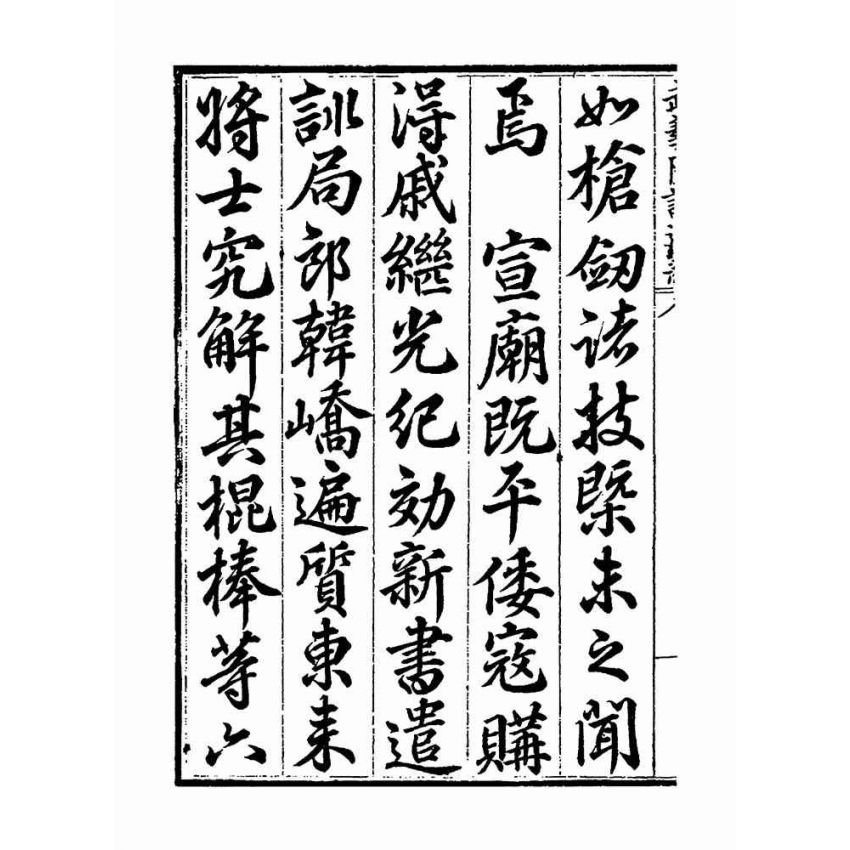 如槍劒諸技槩未之聞
焉　宣廟既平倭寇購
得戚繼光紀效新書遣
訓局郎韓嶠遍質東來
將士究解其棍棒等六